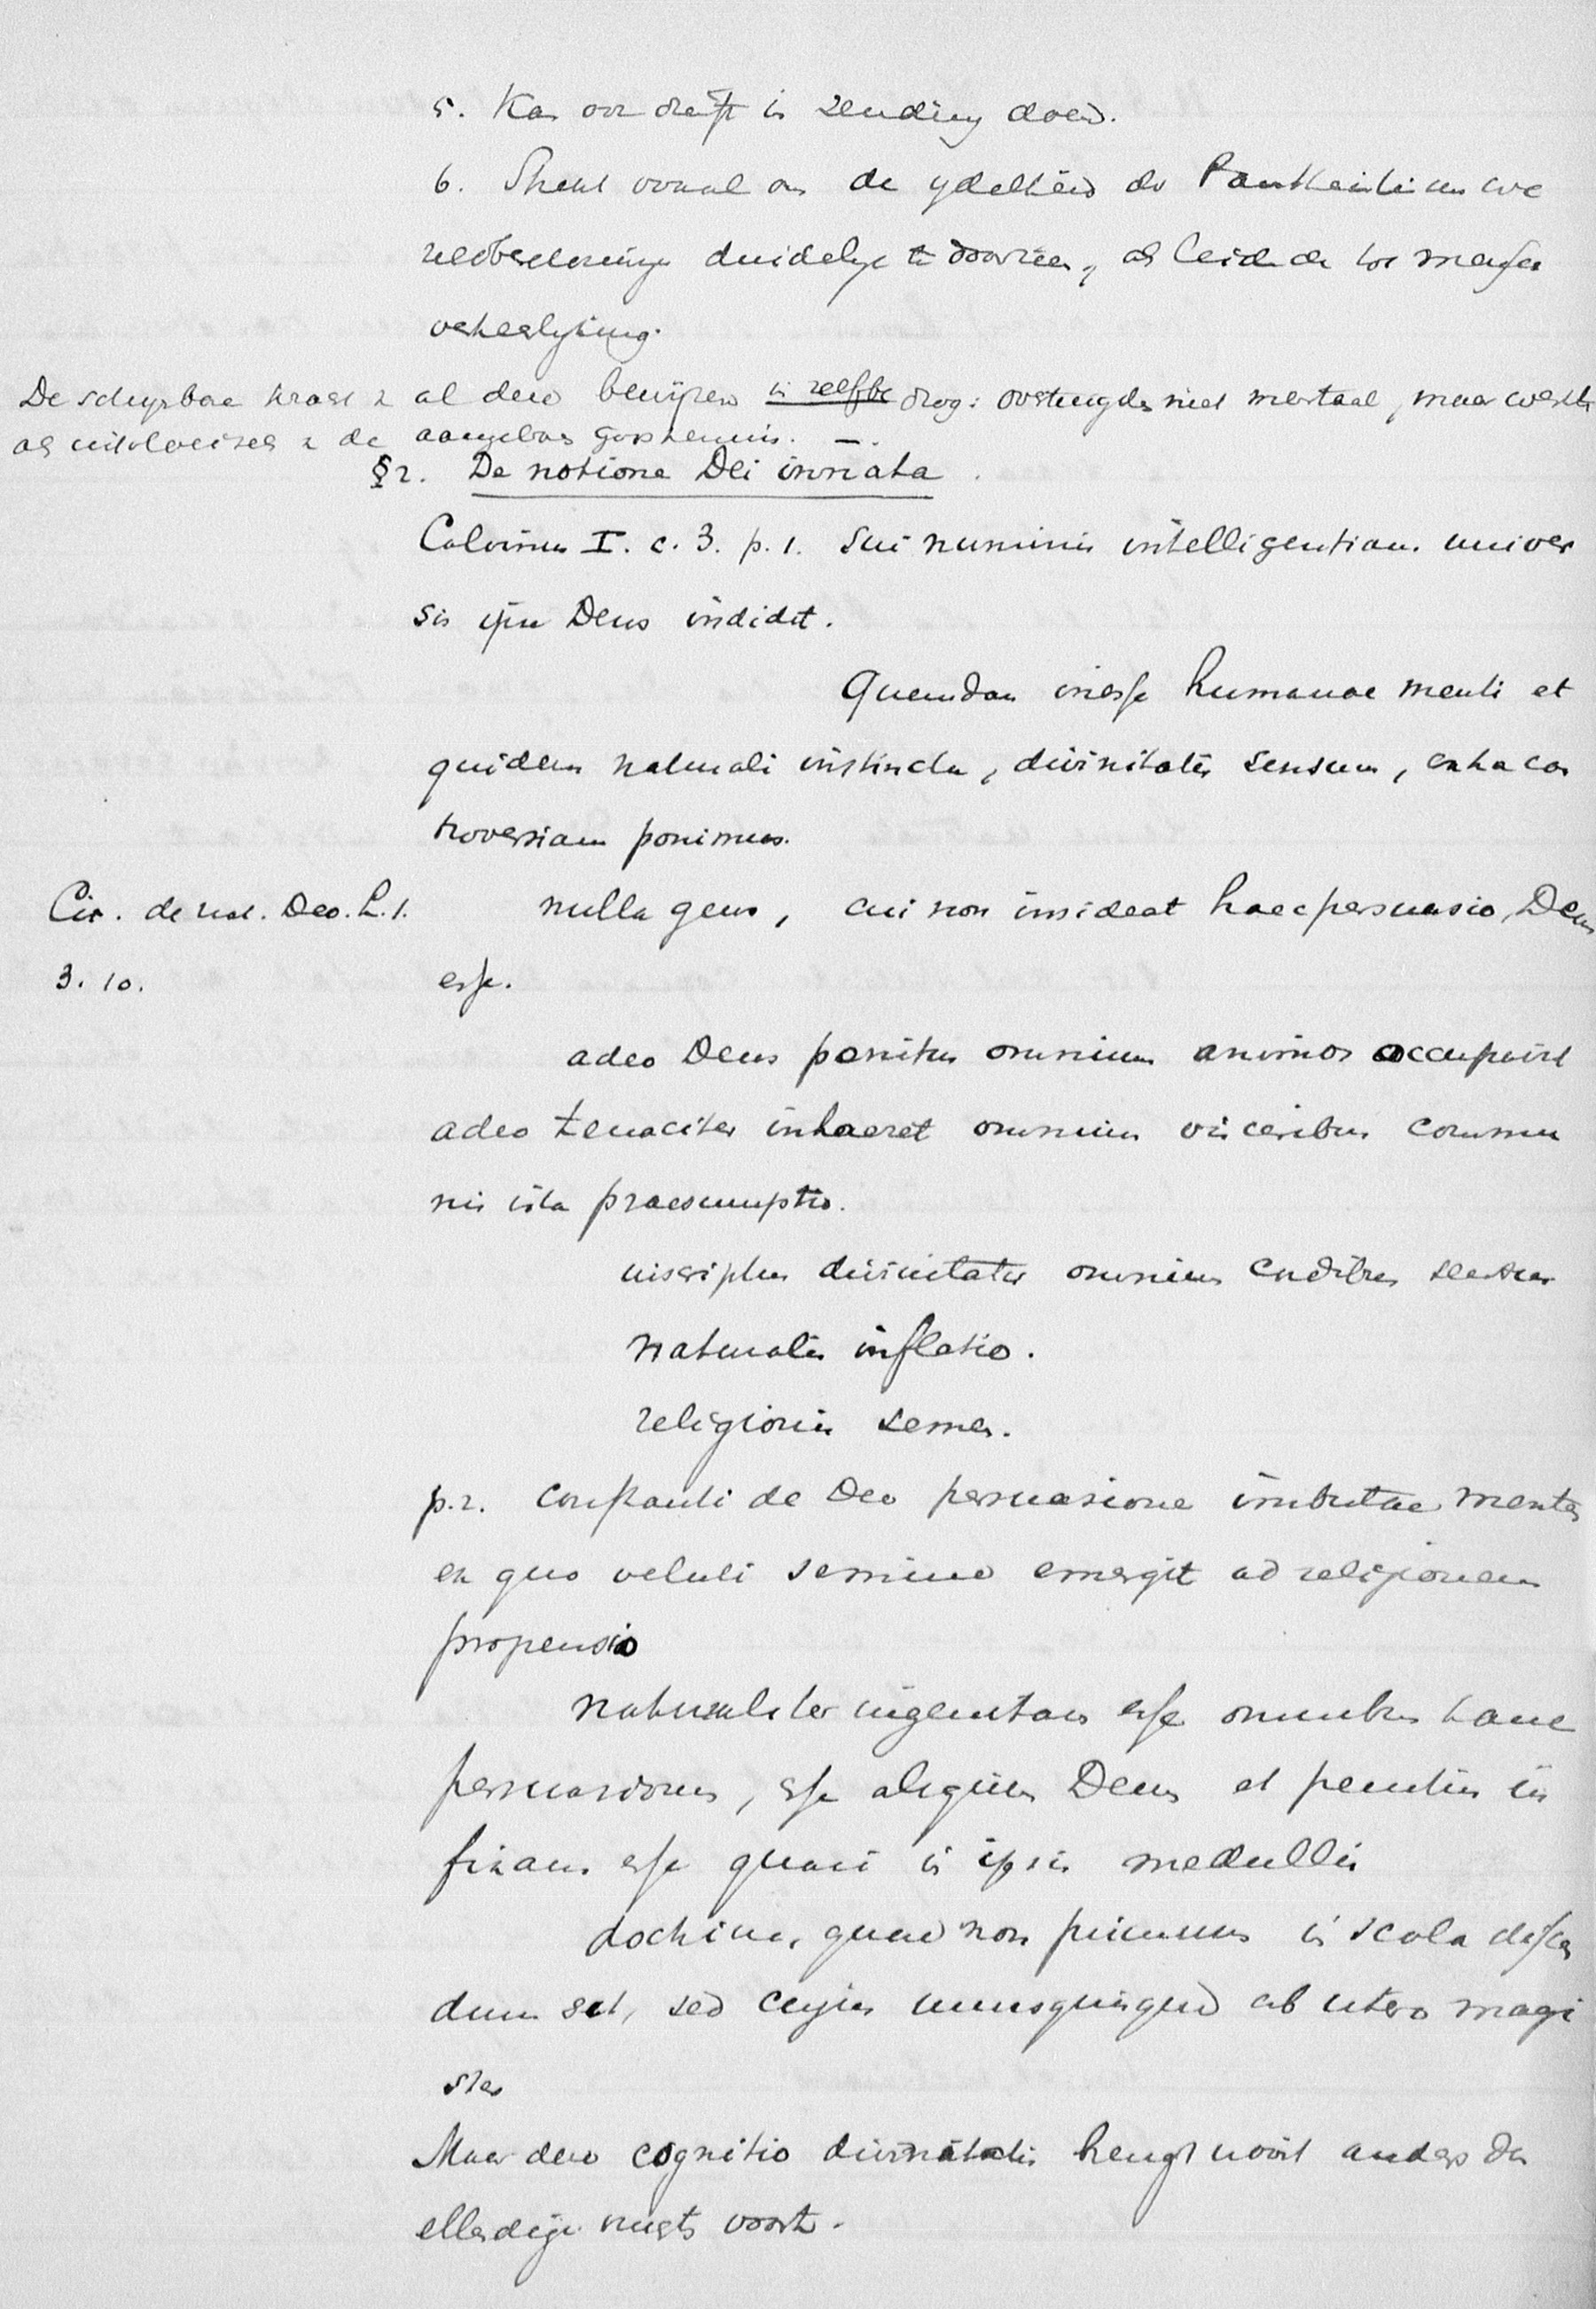 5. Kan ook dienst in zending doen.
6. Strekt vooral om de ydelheid der Pantheistischen we
reldbeschouwing duidelyk te doorzien, als leidende tot menschen
verheerlyking.
De schynbare kracht v al deze bewyzen is zelfbedrog: overtuigden niet mortaal, maar werkten
als uitvloeisel v de aangeboren godskennis. —.
§ 2. De notione Dei innata.
Calvinus I. c. 3. p. 1. Sui numinis intelligentiam univer
sis ipse Deus indidit.
Quemdam inesse humanae menti et
quidem naturali instinctu, divinitatis sensum, extra con
troversiam ponimus.
Cic. de nat. Deo. L. 1. nulla gens, cui non insideat haec persuasio, Deum
3. 10. esse.
adeo Deus penitus omnium animos occupavit
adeo tenaciter inhaeret omnium visceribus commu
nis ista praesumptio.
inscriptus divinitatis omnium cordibus sensus
naturalis inflatio.
religionis semen.
p. 2. constanti de Deo persuasione imbutae mentes
ex quo veluti semine emergit ad religionem
propensio
naturaliter ingenitam esse omnibus hanc
persuasionem, esse aliquem Deum et penitus in
fixam esse quasi in ipsis medullis
doctrina, quae non primum in scola discen
dum sit, sed cujus unusquisque ab utero magi
ster
Maar deze cognitio divinitatis brengt nooit anders dan
ellendige vrucht voort.